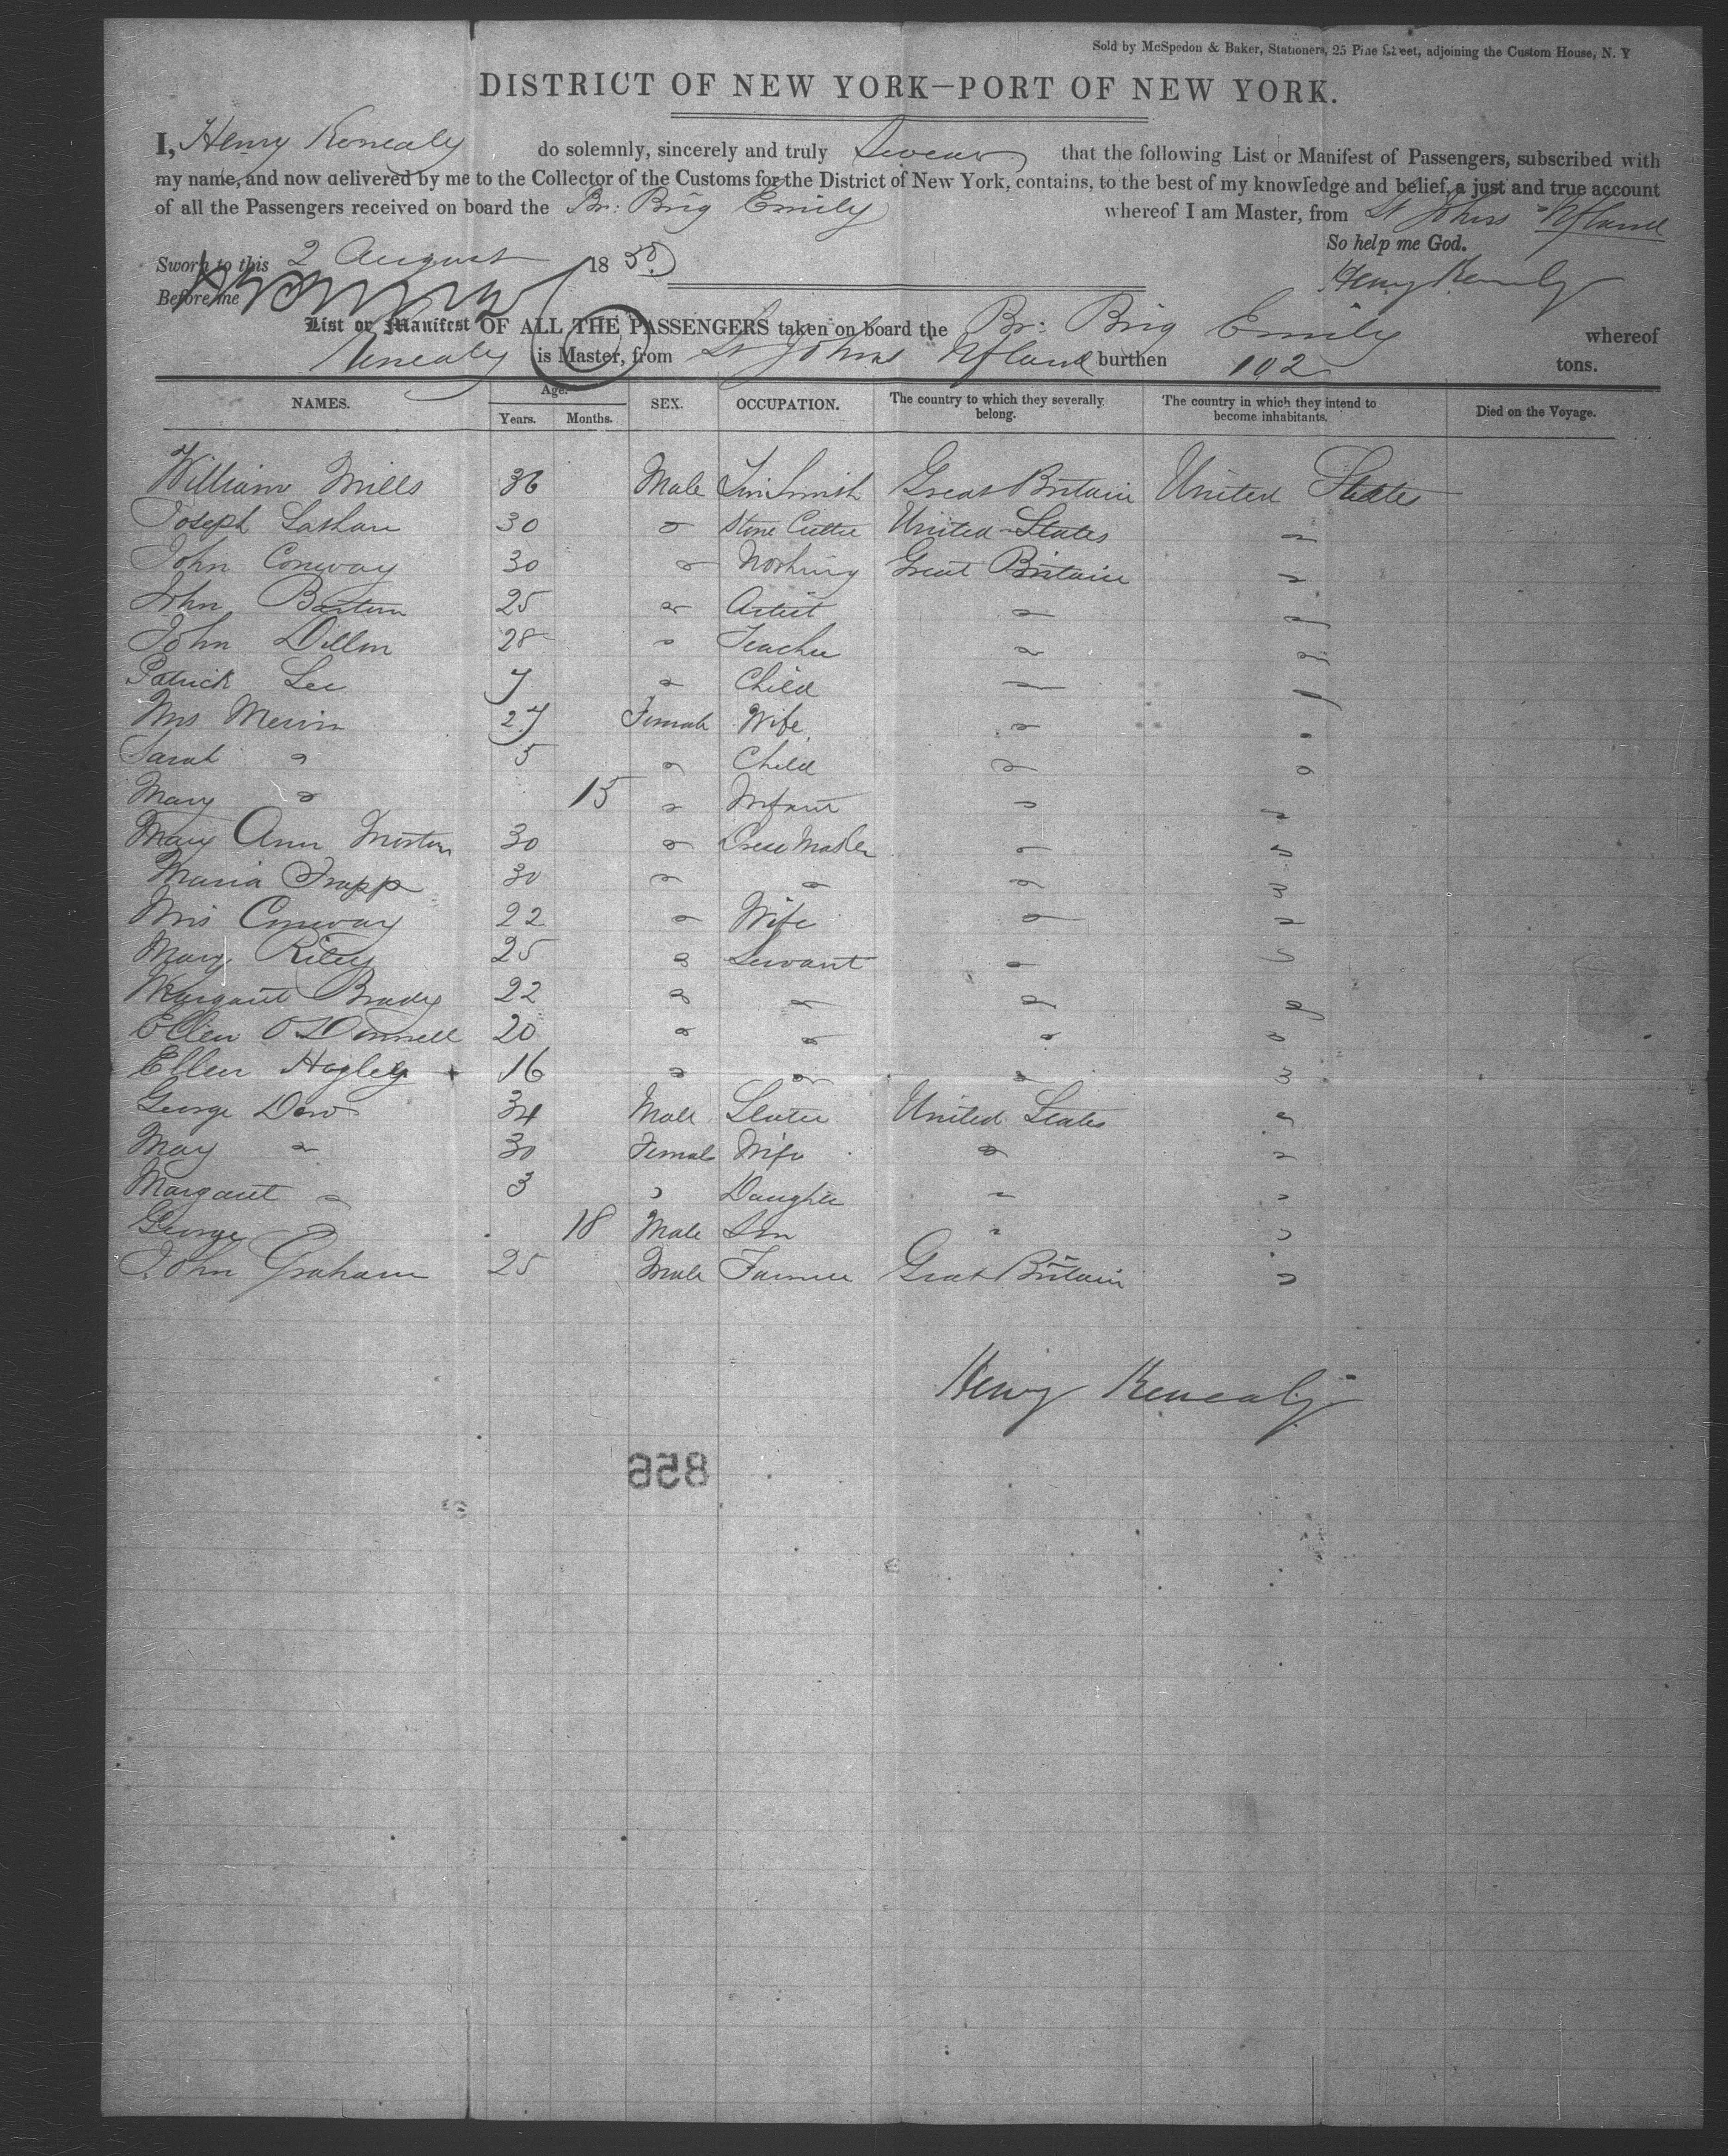 Sold by McSpedon & Baker, Stationers, 25 Pine Street, adjoining the Custom House, N. Y
DISTRICT OF NEW YORK—PORT OF NEW YORK.
I, Henry Kenealy do solemnly, sincerely and truly Swear that the following List or Manifest of Passengers, subscribed with
my name, and now delivered by me to the Collector of the Customs for the District of New York, contains, to the best of my knowledge and belief, a just and true account
of all the Passengers received on board the Br: Brig Emily whereof I am Master, from St Johns Nfland
So help me God.
Sworn to this 2 August 1850 Henry Kenealy
Before me
List or Manifest OF ALL THE PASSENGERS taken on board the Br: Brig Emily whereof
Kenealy is Master, from St Johns Nfland burthen 102 tons.
NAMES. Age. Years. Months. SEX. OCCUPATION. The country to which they severally belong. The country in which they intend to become inhabitants. Died on the Voyage.
William Mills 36 Male Tin Smith Great Britain United States
Joseph 30 " Stone Cutter United States "
John Conway 30 " Nothing Great Britain "
John 25 " Artist " "
John Dillon 28 " Teacher " "
Patrick Lee 7 " Child " "
Mrs Mervin 27 Female Wife " "
Sarah " 5 " Child " "
Mary " 15 " Infant " "
Mary Ann Morton 30 " Dress Maker " "
Maria Trapp 30 " " " "
Mrs Conway 22 " Wife " "
Mary Riley 25 " Servant " "
Margaret Brady 22 " " " "
Ellen O'Donnell 20 " " " "
Ellen Hagley + 16 " " " "
George Dow 34 Male Slater United States "
May " 30 Female Wife " "
Margaret " 3 " Daughter " "
George " 18 Male Son " "
John Graham 25 Male Farmer Great Britain "
Henry Kenealy
856